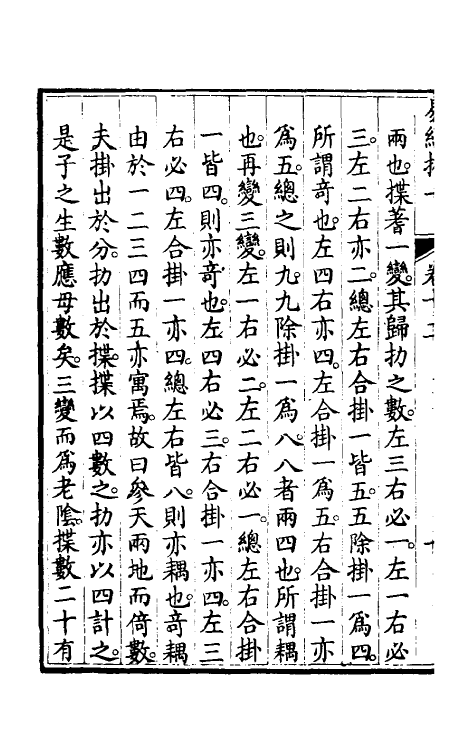 兩也揲蓍一變其歸扐之數左三右必一左一右必
三左二右亦二總左右合掛一皆五五除掛一爲四
所謂竒也左四右亦四左合掛一爲五右合掛一亦
爲五總之則九九除掛一爲八八者兩四也所謂耦
也再變三變左一右必二左二右必一總左右合掛
一皆四則亦竒也左四右必三右合掛一亦四左三
右必四左合掛一亦四總左右皆八則亦耦也竒耦
由於一二三四而五亦寓焉故曰參天兩地而倚數
夫掛出於分扐出於揲揲以四數之扐亦以四計之
是子之生數應母數矣三變而爲老陰揲數二十有